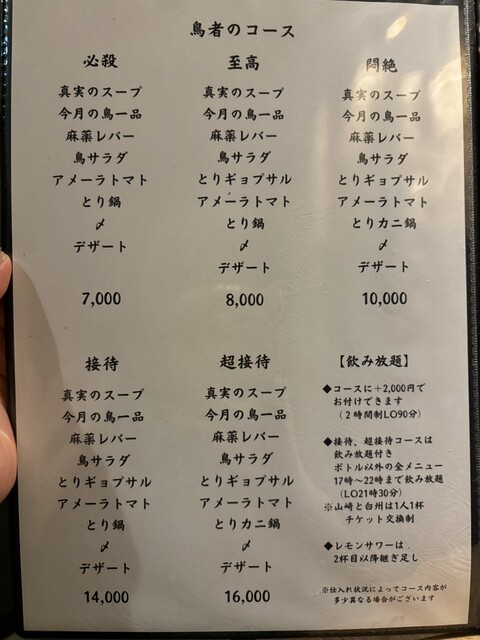 鳥者のコース
必殺
真実のスープ
今月の鳥一品
麻薬レバー
鳥サラダ
アメーラトマト
とり鍋
〆
デザート
7,000
至高
真実のスープ
今月の鳥一品
麻薬レバー
鳥サラダ
とりギョプサル
アメーラトマト
とり鍋
〆
デザート
8,000
悶絶
真実のスープ
今月の鳥一品
麻薬レバー
鳥サラダ
とりギョプサル
アメーラトマト
とりカニ鍋
〆
デザート
10,000
接待
真実のスープ
今月の鳥一品
麻薬レバー
鳥サラダ
とりギョプサル
アメーラトマト
とり鍋
〆
デザート
14,000
超接待
真実のスープ
今月の鳥一品
麻薬レバー
鳥サラダ
とりギョプサル
アメーラトマト
とりカニ鍋
〆
デザート
16,000
【飲み放題】
◆コースに＋2,000円で
お付けできます
（2時間制LO90分）
◆接待、超接待コースは
飲み放題付き
ボトル以外の全メニュー
17時～22時まで飲み放題
（LO21時30分）
※山崎と白州は1人1杯
チケット交換制
◆レモンサワーは
2杯目以降継ぎ足し
※仕入れ状況によってコース内容が
多少異なる場合がございます